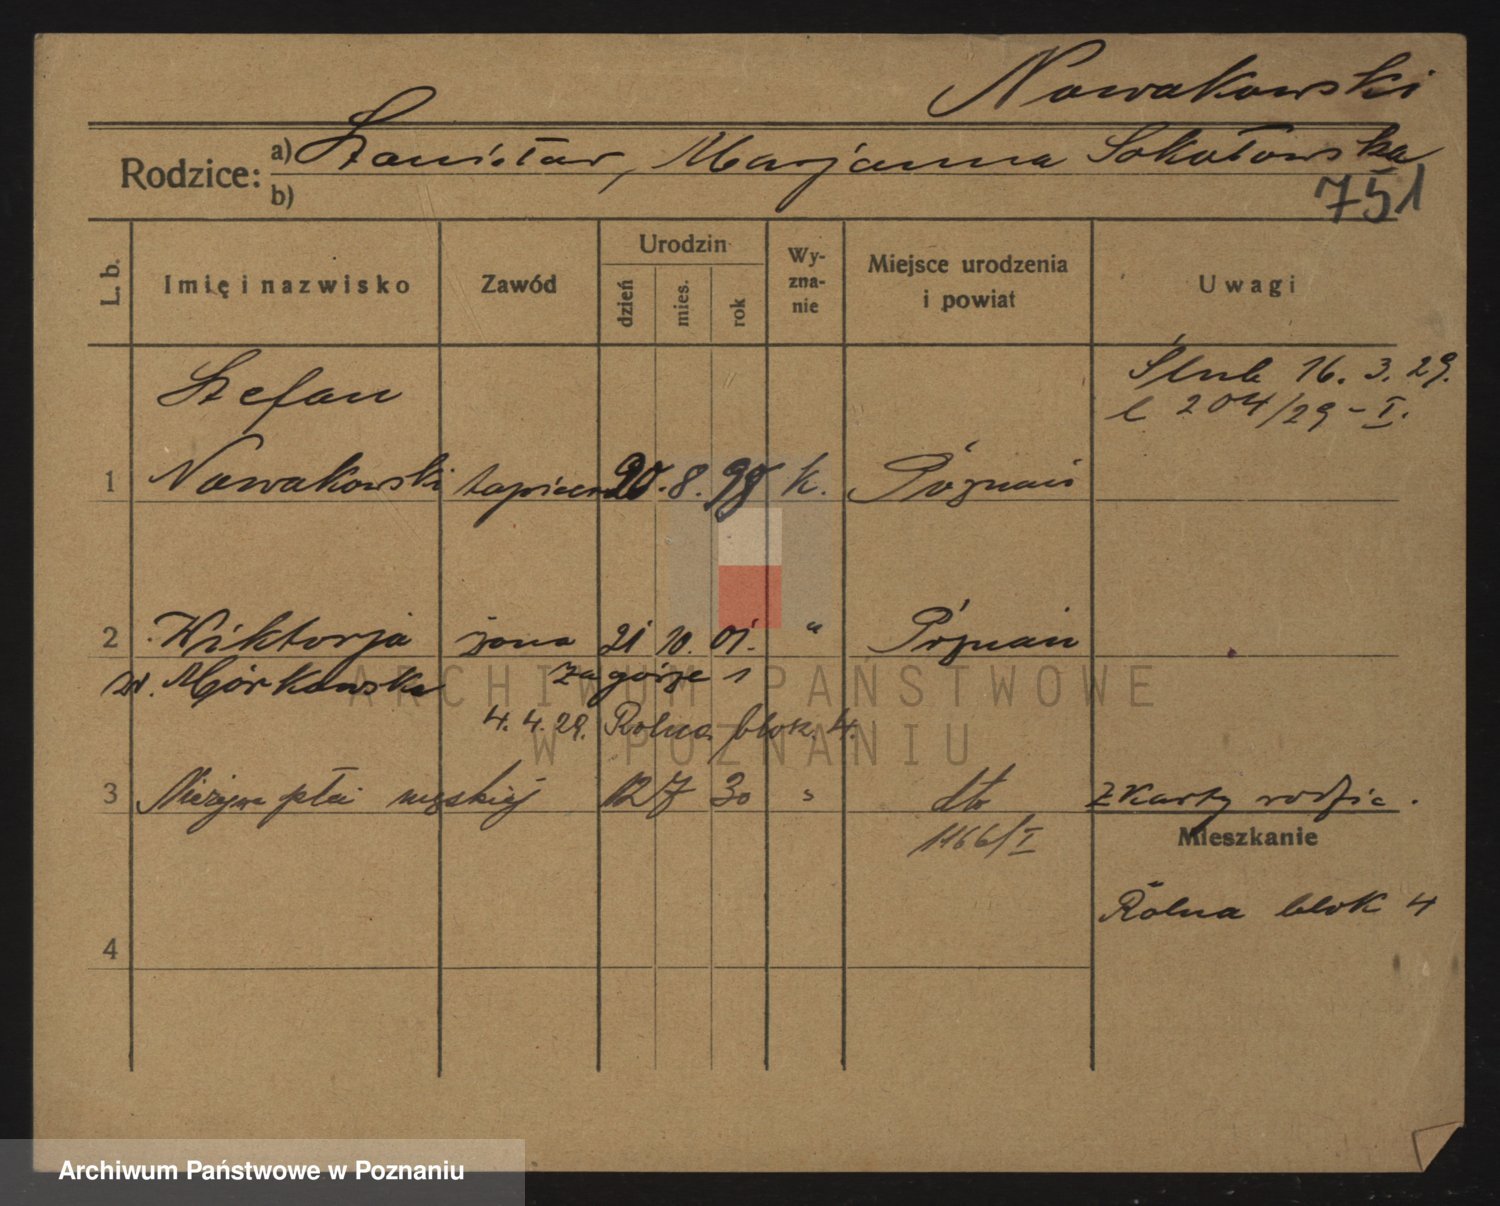 Nowakowski
Rodzice: a) Stanisław, Marjanna Sokołowska
b)
751
L. b. Imię i nazwisko Zawód Urodzin dzień mies. rok Wy-zna-nie Miejsce urodzenia i powiat Uwagi
Ślub 16. 3. 29.
l 204/29 - I.
Stefan
1 Nowakowski tapicer 20. 8. 98 k. Poznań
2 Wiktorja żona 21 10. 01. " Poznań
z d. Górkowska Zagórze 1
4. 4. 29. Rolna blok. 4.
3 Nieżywe płci męskiej 12 7 30 " dto z karty rodzic.
1166/I
Mieszkanie
Rolna blok 4
4
ARCHIWUM PAŃSTWOWE
W POZNANIU
Archiwum Państwowe w Poznaniu